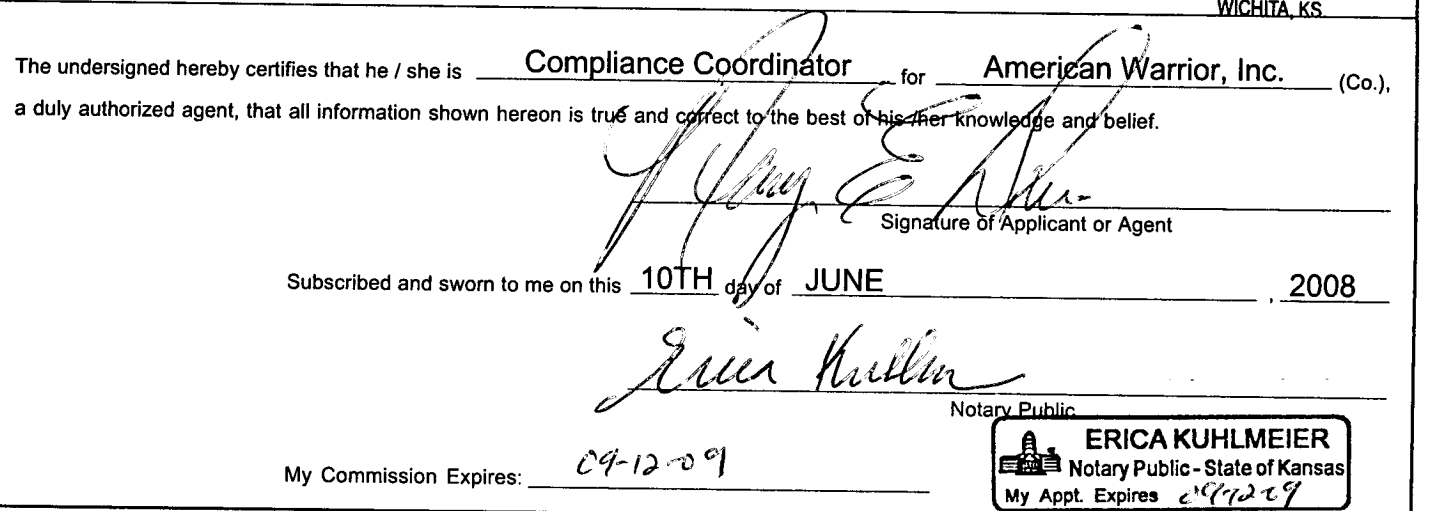 WICHITA, KS
The undersigned hereby certifies that he / she is Compliance Coordinator for American Warrior, Inc. (Co.),
a duly authorized agent, that all information shown hereon is true and correct to the best of his /her knowledge and belief.
Signature of Applicant or Agent
Subscribed and sworn to me on this 10TH day of JUNE , 2008
Erica
Notary Public
ERICA KUHLMEIER
Notary Public - State of Kansas
My Commission Expires: 09-12-09
My Appt. Expires